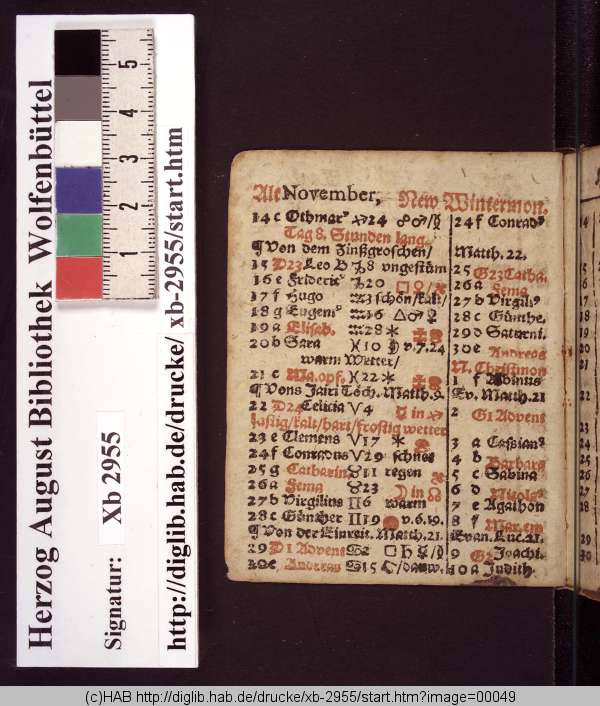 Herzog August Bibliothek Wolfenbüttel
Signatur: Xb 2955
http://diglib.hab.de/drucke/ xb-2955/start.htm
1 2 3 4 5
Alt November, New Wintermon.
14 c Othmar 24 24 f Conrad
Tag 8. Stunden lang.
Von dem Zinßgroschen/ Matth. 22.
15 D23 Leo 8 vngestüm 25 G23 Catha.
16 e Frideric 20 26 a
17 f Hugo 3 schön/kalt/ 27 b Virgili
18 g Eugeni 16 28 c Günthe.
19 a Elisab. 28 29 d Saturni.
20 b Sara 10 v.7.24 30 e Andreas
warm Wetter/ Christmon
21 c Ma.opf. 22 1 f
Vons Jairi Töch. Matth.9. Ev. Matth.21
22 D24 4 in 2 G1 Advent
kalt/hart/frostig wetter
23 e Clemens 17 3 a Caßian
24 f Conradus 29 schnee 4 b Barbara
25 g Catharin 11 regen 5 c Sabina
26 a 23 in 6 d Nicola
27 b Virgilius 6 warm 7 e Agathon
28 c Günther 19 v.6.19. 8 f Mar.em
Von der Einreit. Matth.21. Evan. Luc.21.
29 D1 Advent 2 9 G2 Joachi.
30 e Andreas 15 10 a Judith
(c)HAB http://diglib.hab.de/drucke/xb-2955/start.htm?image=00049